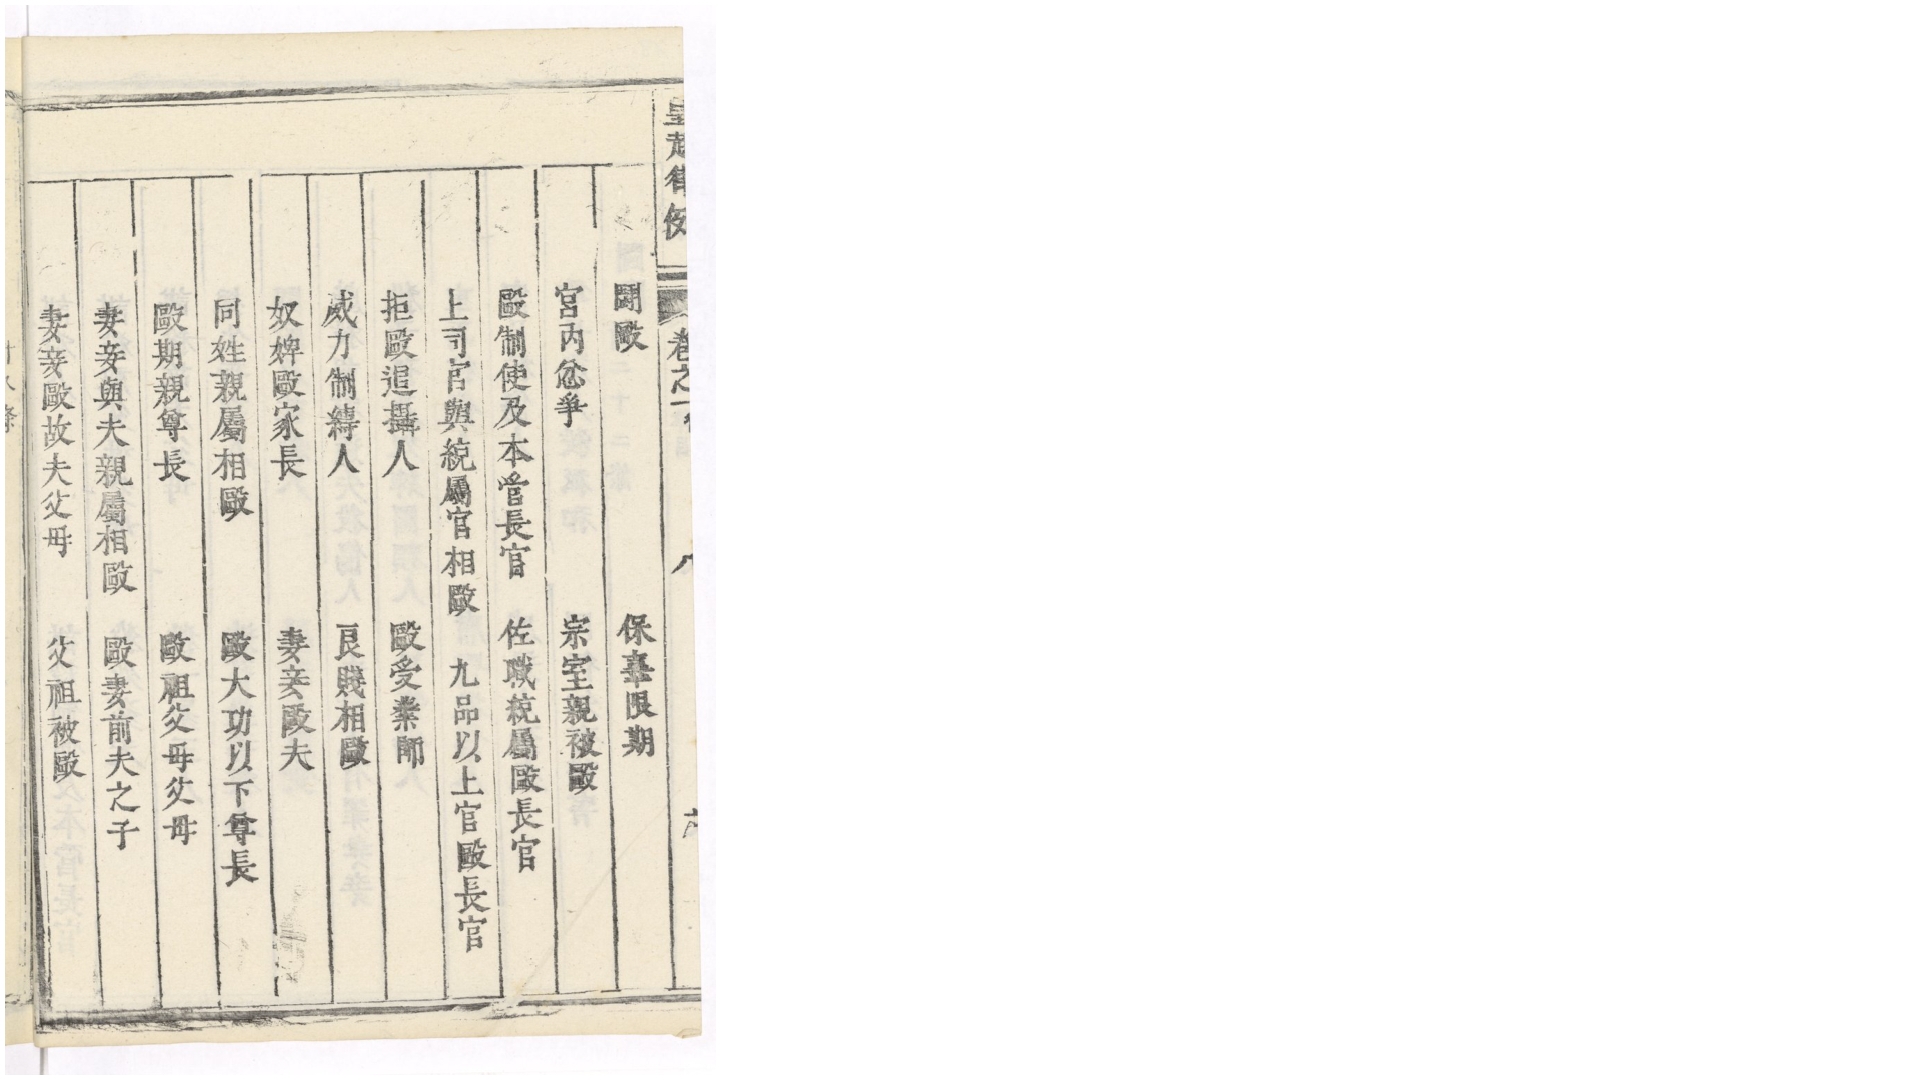 皇越律例 卷之一 八
鬪毆 保辜限期
宮內忿爭 宗室親被毆
毆制使及本管長官 佐職統屬毆長官
上司官與統屬官相毆 九品以上官毆長官
拒毆追攝人 毆受業師
威力制縛人 良賤相毆
奴婢毆家長 妻妾毆夫
同姓親屬相毆 毆大功以下尊長
毆期親尊長 毆祖父母父母
妻妾與夫親屬相毆 毆妻前夫之子
妻妾毆故夫父母 父祖被毆